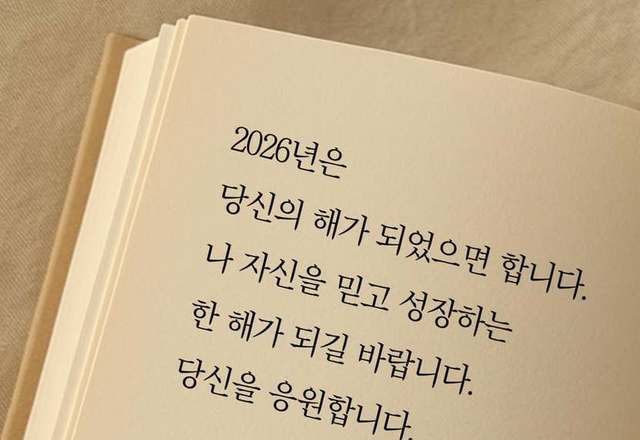 2026년은
당신의 해가 되었으면 합니다.
나 자신을 믿고 성장하는
한 해가 되길 바랍니다.
당신을 응원합니다.